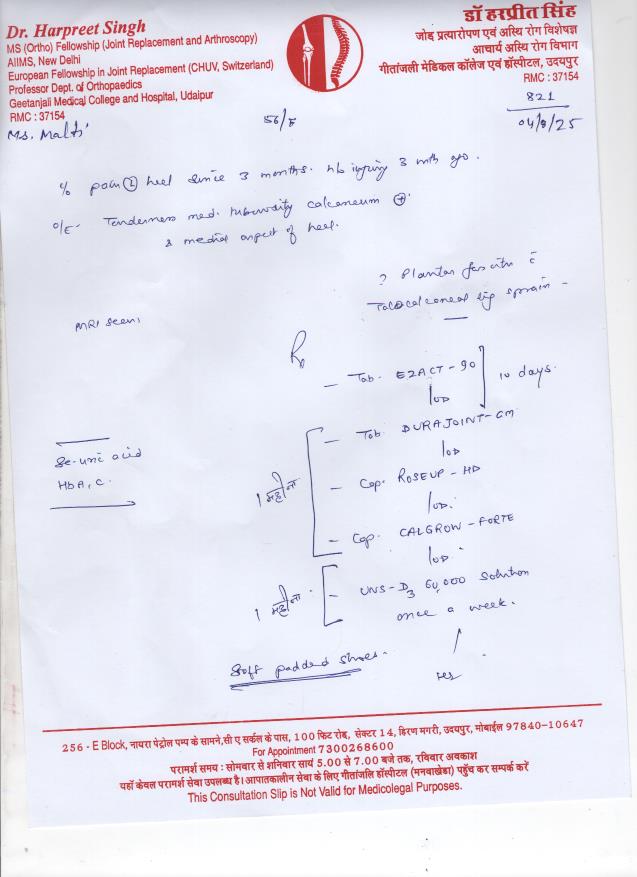 Dr. Harpreet Singh
MS (Ortho) Fellowship (Joint Replacement and Arthroscopy)
AIIMS, New Delhi
European Fellowship in Joint Replacement (CHUV, Switzerland)
Professor Dept. of Orthopaedics
Geetanjali Medical College and Hospital, Udaipur
RMC : 37154
डॉ हरप्रीत सिंह
जोड़ प्रत्यारोपण एवं अस्थि रोग विशेषज्ञ
आचार्य अस्थि रोग विभाग
गीतांजली मेडिकल कॉलेज एवं हॉस्पीटल, उदयपुर
RMC : 37154
821
Ms. Malti
56/F
04/8/25
c/o pain (L) heel since 3 months. h/o injury 3 mth ago.
o/E- Tenderness med. tuberosity calcaneum +
& medial aspect of heel.
? Plantar fascitis c̄
Talocalcaneal lig sprain -
MRI seen,
Rx
- Tab. EZACT-90
10 days.
1 OD
- Tab. DURAJOINT-GM
1 OD
Se-uric acid
HbA1C.
1 महीना
- Cap. ROSEUP-HD
1 OD.
- Cap. CALGROW-FORTE
1 OD.
1 महीना
- UNS-D3 60,000 solution
once a week.
Soft padded shoes.
256 - E Block, नायरा पेट्रोल पम्प के सामने,सी ए सर्कल के पास, 100 फिट रोड, सेक्टर 14, हिरण मगरी, उदयपुर, मोबाईल 97840-10647
For Appointment 7300268600
परामर्श समय : सोमवार से शनिवार सायं 5.00 से 7.00 बजे तक, रविवार अवकाश
यहाँ केवल परामर्श सेवा उपलब्ध है। आपातकालीन सेवा के लिए गीतांजलि हॉस्पीटल (मनवाखेडा) पहुँच कर सम्पर्क करें
This Consultation Slip is Not Valid for Medicolegal Purposes.